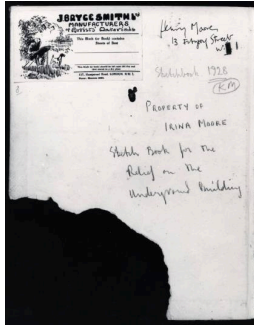 J. BRYCE SMITH LTD
MANUFACTURERS
of Artists' Materials
This Block (or Book) contains
Sheets of
117, Hampstead Road, LONDON, N.W.1
Henry Moore
Street
Sketchbook 1928
PROPERTY OF
IRINA MOORE
Sketch Book for the
Relief on the
Underground Building